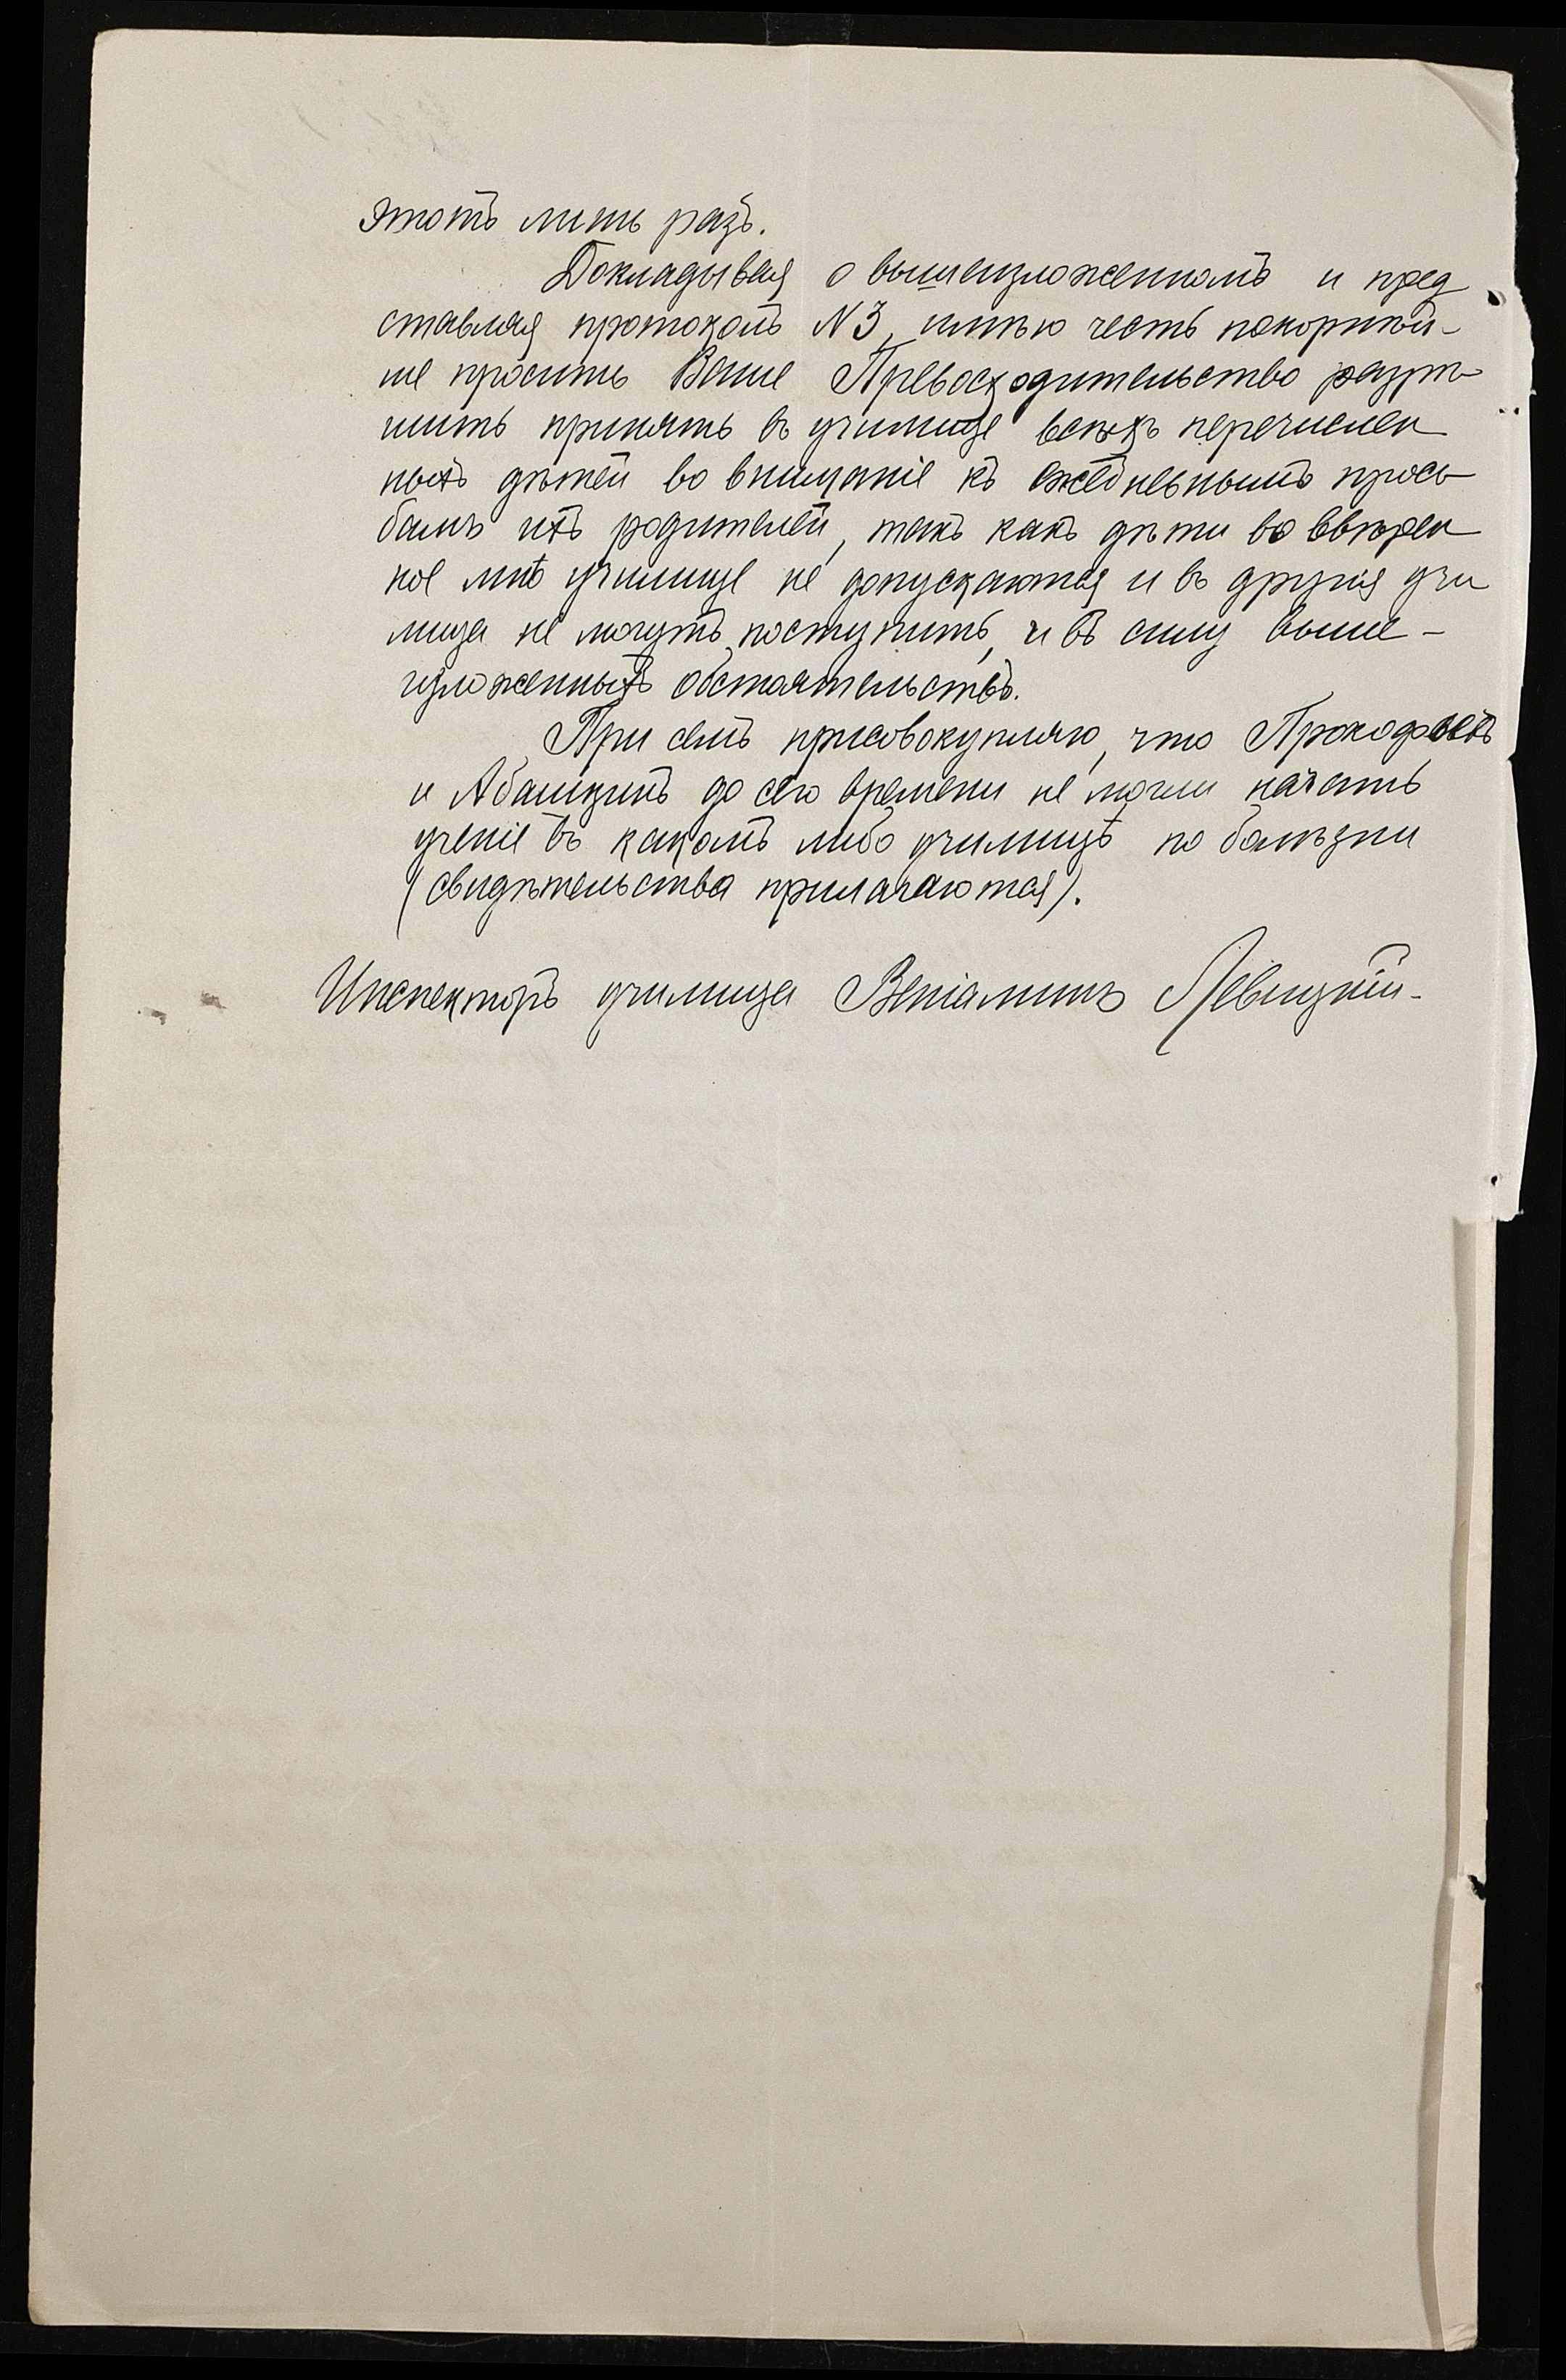 этотъ лишь разъ.
Докладывая о вышеизложенномъ и пред
ставляя протоколъ №3, имѣю честь покорнѣй-
ше просить Ваше Превосходительство разрѣ
шить принять въ училище всѣхъ перечислен
ныхъ дѣтей во вниманіе къ ежедневнымъ прось
бамъ ихъ родителей, такъ какъ дѣти во ввѣрен
ное мнѣ училище не допускаются и въ другія учи
лища не могутъ поступить, и въ силу выше-
изложенныхъ обстоятельствъ.
При семъ присовокупляю, что Прокофьевъ
и Абашкинъ до сего времени не могли начать
ученіе въ какомъ либо училищѣ по болѣзни
(свидѣтельства прилагаются).
Инспекторъ училища Веніаминъ Левицкій.